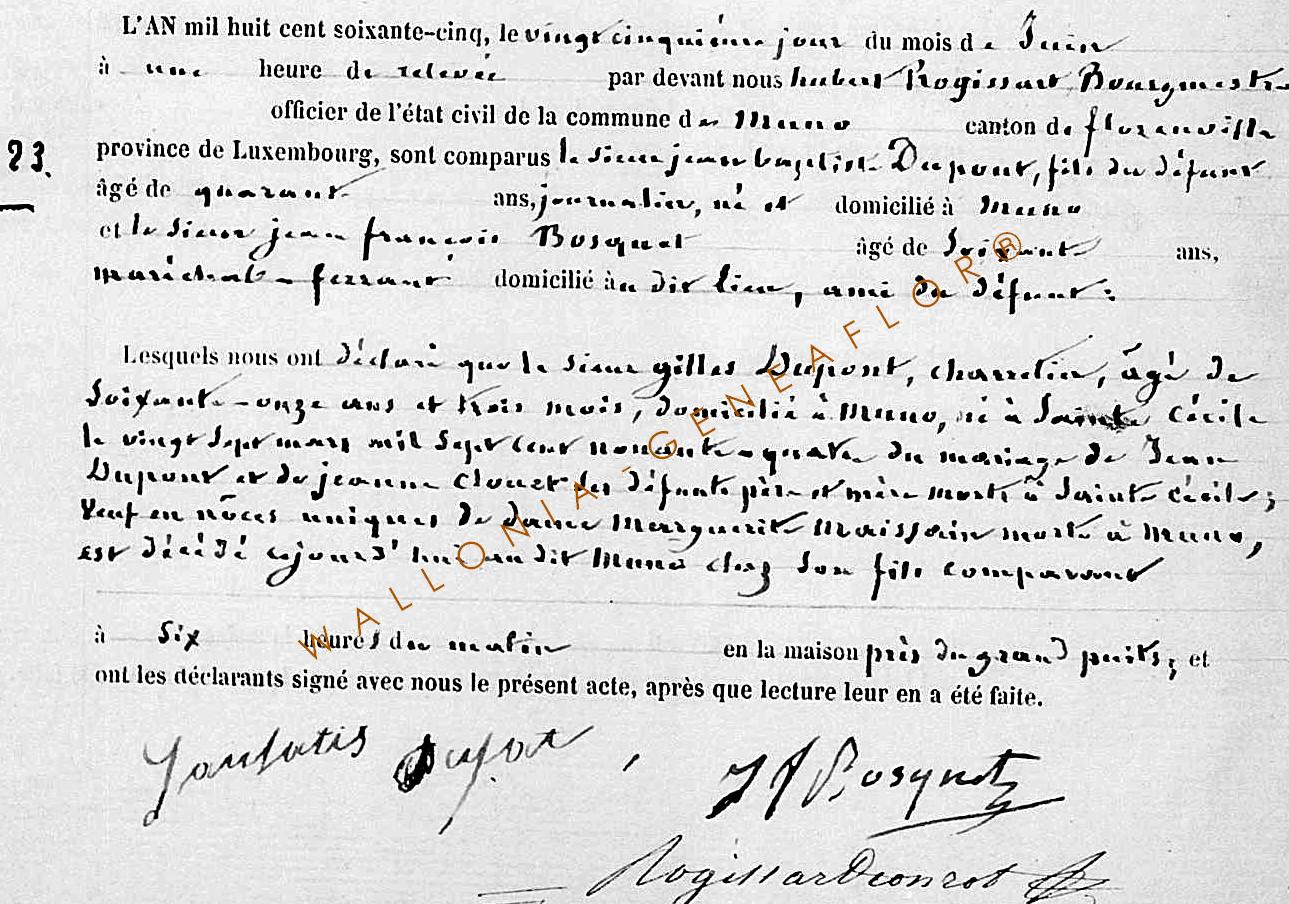 L'AN mil huit cent soixante-cinq, le vingt cinquième jour du mois de Juin
à une heure de relevée par devant nous hubert Rogissart Bourgmestre
officier de l'état civil de la commune de Muno canton de florenville
23. province de Luxembourg, sont comparus le sieur jean baptiste Dupont, fils du défunt
âgé de quarante ans, journalier, né et domicilié à Muno
et le sieur jean françois Bosquet âgé de soixante ans,
maréchal-ferrant domicilié au dit lieu, ami du défunt:
Lesquels nous ont déclaré que le sieur gilles Dupont, charretier, âgé de
soixante-onze ans et trois mois, domicilié à Muno, né à Sainte Cécile
le vingt sept mars mil sept cent nonante-quatre du mariage de Jean
Dupont et de jeanne Clouet les défunts père et mère morts à Sainte Cécile;
veuf en nôces uniques de dame Marguerite Maissoin morte à Muno,
est décédé cejourd'hui au dit Muno chez son fils comparant
à six heures du matin en la maison près du grand puits; et
ont les déclarants signé avec nous le présent acte, après que lecture leur en a été faite.
Dupot, JF Bosquet
WALLONIA-GENEAFLOR®